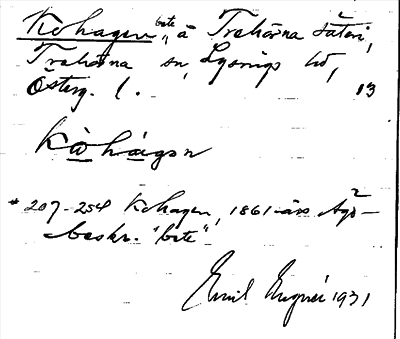 Kohagen "bete" å Trehörna säteri,
Trehörna sn, Lysings hd,
Österg. l. 13
Kòhágen
* 207-254 Kohagen, 1861 års Ägo-
beskr. "bete"
Emil 1931